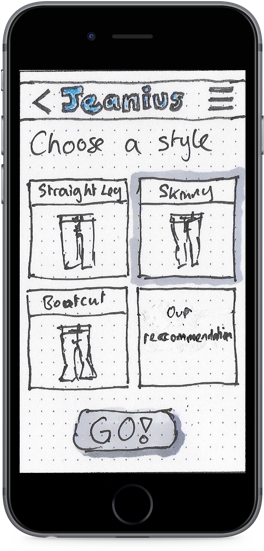 < Jeanius
Choose a style
Straight Leg
Skinny
Bootcut
Our
reccommendation
GO!